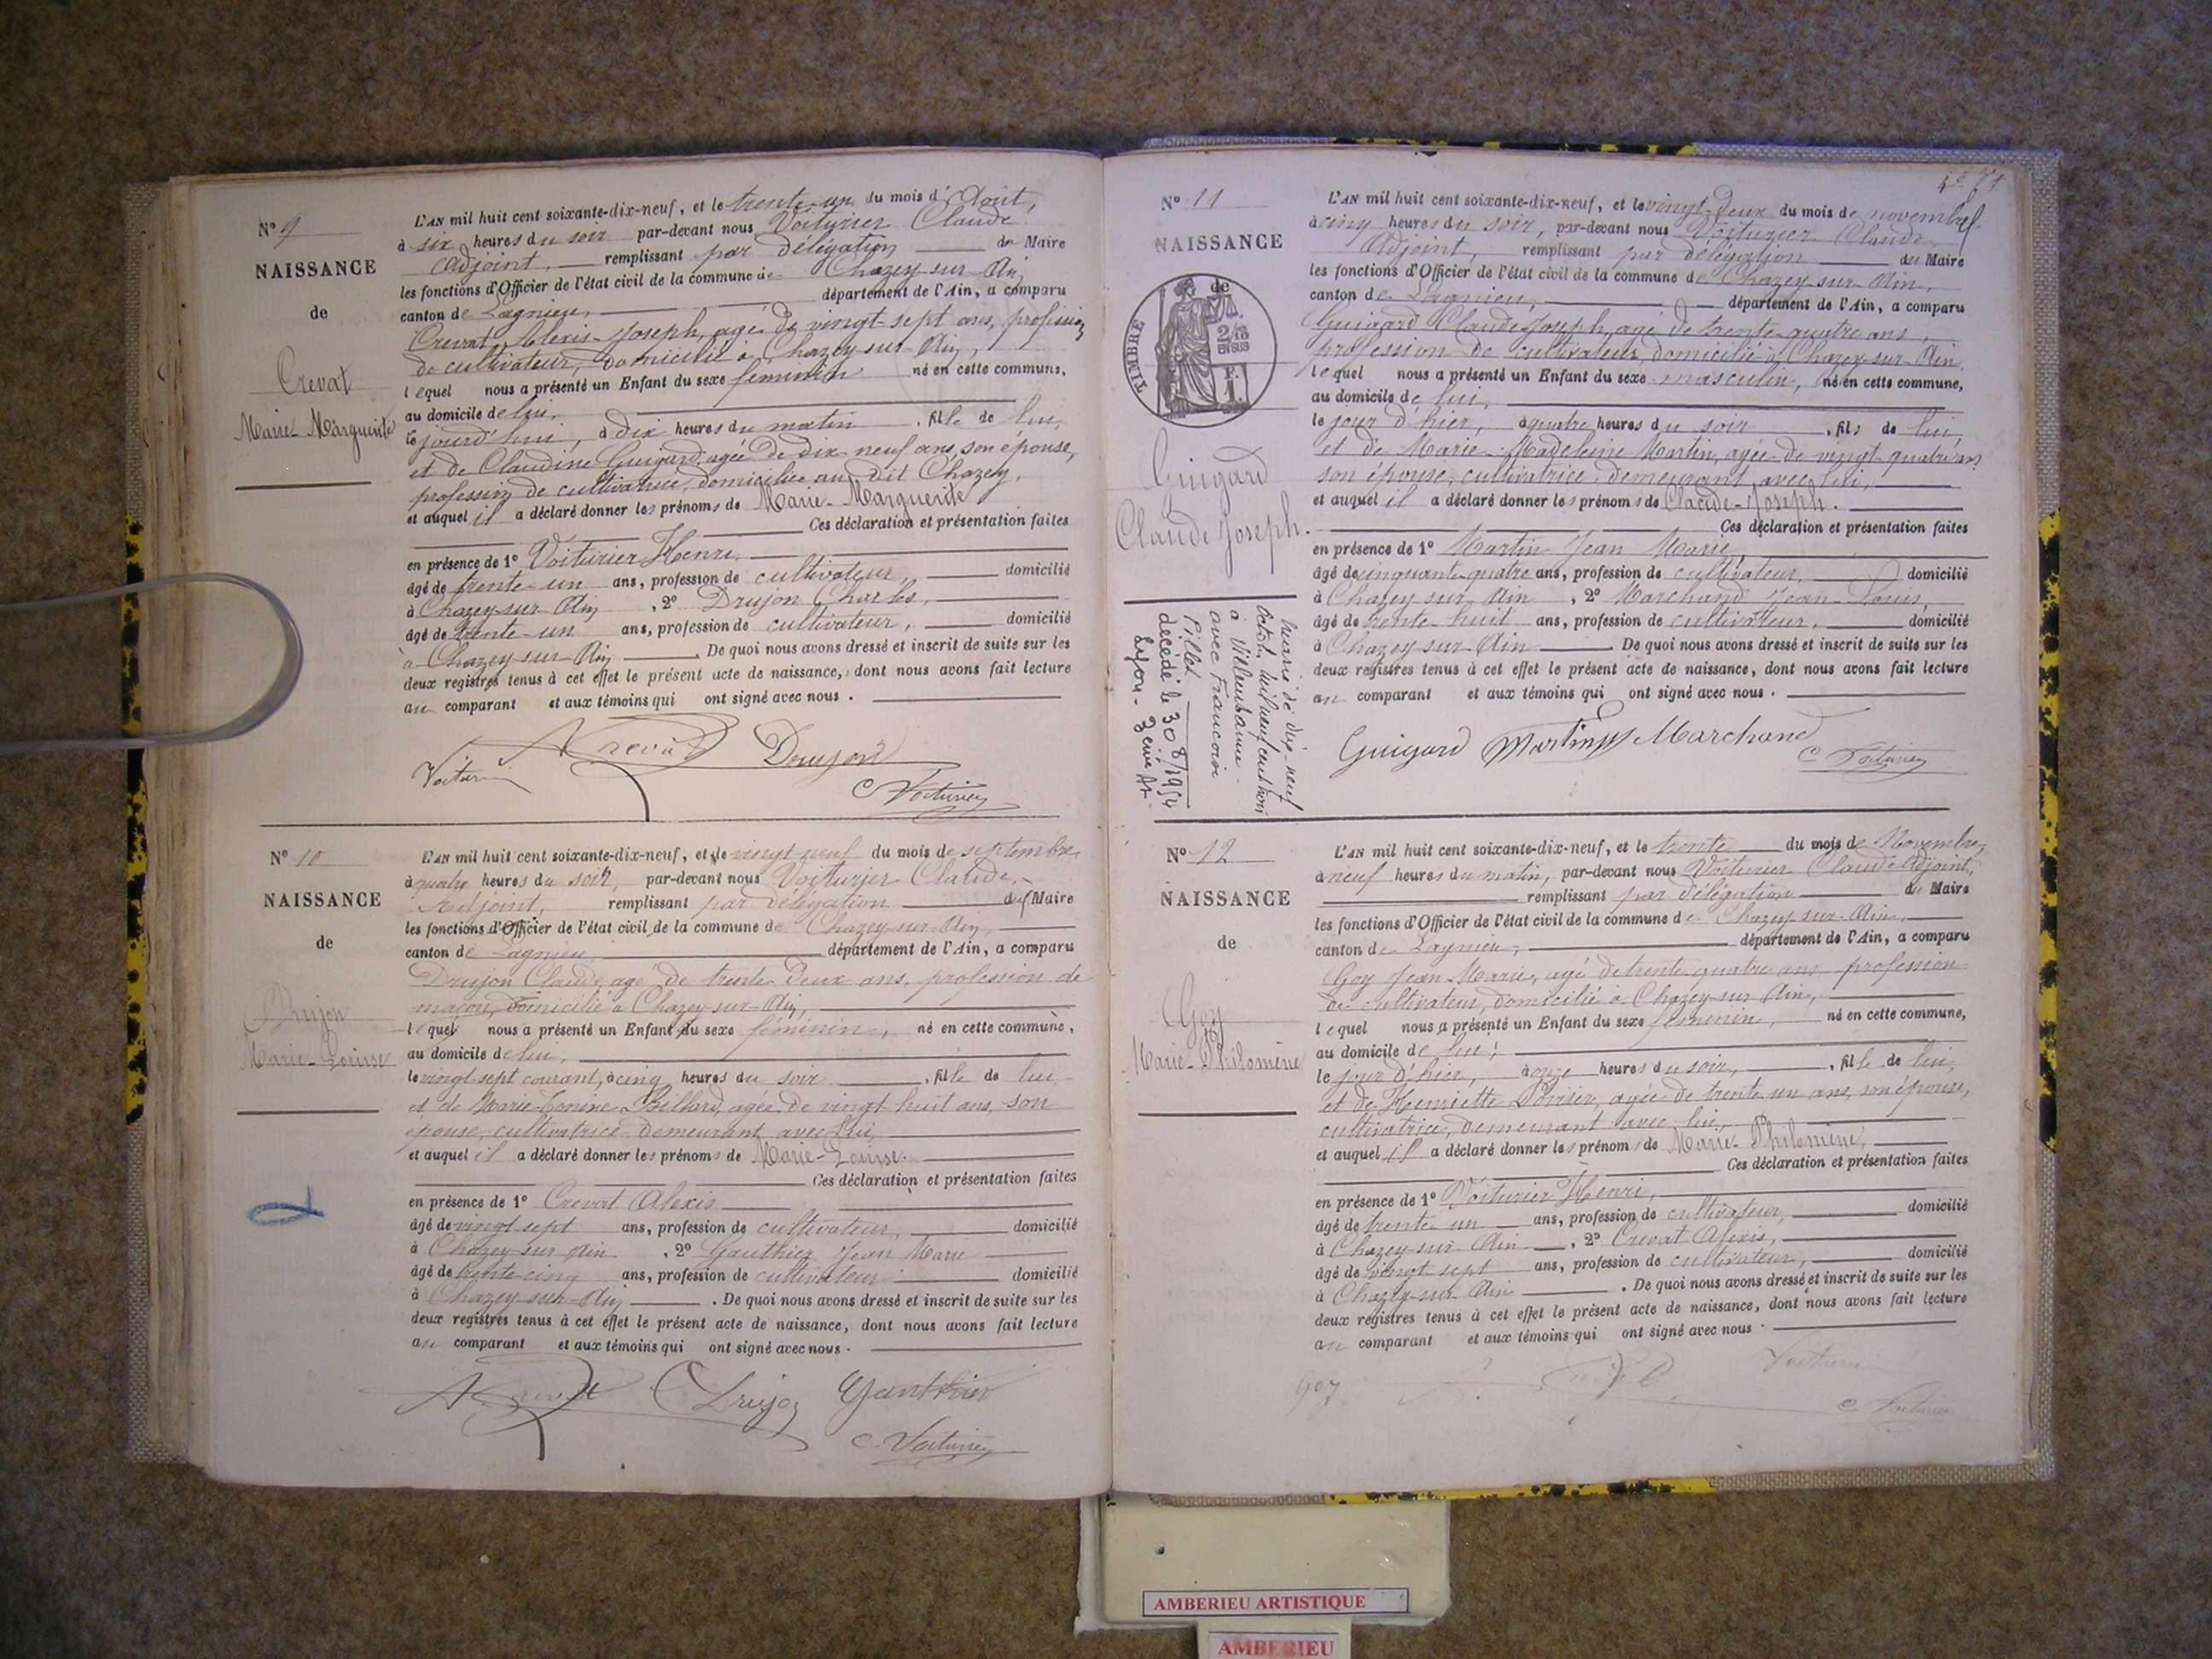 N° 9
NAISSANCE
de
Crevat
Marie Marguerite
L'AN mil huit cent soixante-dix-neuf, et le trente-un du mois d'Août,
à six heures du soir par-devant nous Voiturier Claude
Adjoint, remplissant par délégation du Maire
les fonctions d'Officier de l'état civil de la commune de Chazey-sur-Ain,
canton de Lagnieu, département de l'Ain, a comparu
Crevat Alexis-Joseph, agé de vingt-sept ans, profession
de cultivateur, domicilié à Chazey-sur-Ain,
lequel nous a présenté un Enfant du sexe féminin né en cette commune,
au domicile de lui,
le jourd'hui, à dix heures du matin, fille de lui,
et de Claudine Guigard, agée de dix-neuf ans, son épouse,
profession de cultivatrice, domiciliée au dit Chazey,
et auquel il a déclaré donner les prénoms de Marie-Marguerite
Ces déclaration et présentation faites
en présence de 1° Voiturier Henri
âgé de trente-un ans, profession de cultivateur, domicilié
à Chazey-sur-Ain, 2° Drujon Charles,
âgé de trente-un ans, profession de cultivateur, domicilié
à Chazey-sur-Ain. De quoi nous avons dressé et inscrit de suite sur les
deux registres tenus à cet effet le présent acte de naissance, dont nous avons fait lecture
au comparant et aux témoins qui ont signé avec nous.
Crevat Drujon
Voiturier
C Voiturier
N° 10
NAISSANCE
de
Drujon
Marie-Louise
L'AN mil huit cent soixante-dix-neuf, et le vingt neuf du mois de septembre,
à quatre heures du soir, par-devant nous Voiturier Claude,
Adjoint, remplissant par délégation du Maire
les fonctions d'Officier de l'état civil de la commune de Chazey-sur-Ain,
canton de Lagnieu département de l'Ain, a comparu
Drujon Claude, agé de trente deux ans, profession de
maçon, domicilié à Chazey-sur-Ain,
lequel nous a présenté un Enfant du sexe féminin, né en cette commune,
au domicile de lui,
le vingt sept courant, à cinq heures du soir, fille de lui
et de Marie Billard, agée de vingt huit ans, son
épouse, cultivatrice demeurant avec lui,
et auquel il a déclaré donner les prénoms de Marie-Louise.
Ces déclaration et présentation faites
en présence de 1° Crevat Alexis
âgé de vingt sept ans, profession de cultivateur, domicilié
à Chazey-sur-Ain, 2° Gauthier Jean Marie
âgé de trente-cinq ans, profession de cultivateur domicilié
à Chazey-sur-Ain. De quoi nous avons dressé et inscrit de suite sur les
deux registres tenus à cet effet le présent acte de naissance, dont nous avons fait lecture
au comparant et aux témoins qui ont signé avec nous.
Crevat Drujon Gauthier
C Voiturier
N° 11
NAISSANCE
de
TIMBRE
2/10
EN SUS
Guigard
Claude Joseph.
Marié le dix-neuf
Août mil neuf cent trois
à Villeurbanne
avec Françoise
Pillet
décédé le 30 8/1954
Lyon - 3eme Art
L'AN mil huit cent soixante-dix-neuf, et le vingt-deux du mois de novembre
à cinq heures du soir, par-devant nous Voiturier Claude,
Adjoint, remplissant par délégation du Maire
les fonctions d'Officier de l'état civil de la commune de Chazey-sur-Ain,
canton de Lagnieu, département de l'Ain, a comparu
Guigard Claude-Joseph, agé de trente-quatre ans,
profession de cultivateur, domicilié à Chazey-sur-Ain,
lequel nous a présenté un Enfant du sexe masculin, né en cette commune,
au domicile de lui,
le jour d'hier, à quatre heures du soir, fils de lui,
et de Marie-Madeleine Martin, agée de vingt-quatre ans
son épouse, cultivatrice, demeurant avec lui,
et auquel il a déclaré donner les prénoms de Claude-Joseph.
Ces déclaration et présentation faites
en présence de 1° Martin Jean Marie,
âgé de cinquante-quatre ans, profession de cultivateur, domicilié
à Chazey sur Ain, 2° Marchand Jean-Louis,
âgé de trente-huit ans, profession de cultivateur, domicilié
à Chazey sur-Ain. De quoi nous avons dressé et inscrit de suite sur les
deux registres tenus à cet effet le présent acte de naissance, dont nous avons fait lecture
au comparant et aux témoins qui ont signé avec nous.
Guigard Martin Marchand
C Voiturier
N° 12
NAISSANCE
de
Goy
Marie-Philomène
L'AN mil huit cent soixante-dix-neuf, et le trente du mois de Novembre,
à neuf heures du matin, par-devant nous Voiturier Claude Adjoint,
remplissant par délégation du Maire
les fonctions d'Officier de l'état civil de la commune de Chazey-sur-Ain,
canton de Lagnieu, département de l'Ain, a comparu
Goy Jean Marie, agé de trente-quatre ans profession
de cultivateur, domicilié à Chazey-sur Ain,
lequel nous a présenté un Enfant du sexe féminin, né en cette commune,
au domicile de lui,
le jour d'hier, à onze heures du soir, fille de lui,
et de Henriette, agée de trente un ans, son épouse,
cultivatrice, demeurant avec lui,
et auquel il a déclaré donner les prénoms de Marie-Philomène,
Ces déclaration et présentation faites
en présence de 1° Voiturier Henri,
âgé de trente un ans, profession de cultivateur, domicilié
à Chazey-sur-Ain, 2° Crevat Alexis,
âgé de vingt sept ans, profession de cultivateur, domicilié
à Chazey-sur-Ain. De quoi nous avons dressé et inscrit de suite sur les
deux registres tenus à cet effet le présent acte de naissance, dont nous avons fait lecture
au comparant et aux témoins qui ont signé avec nous.
Goy Voiturier
C Voiturier
AMBERIEU ARTISTIQUE
AMBERIEU